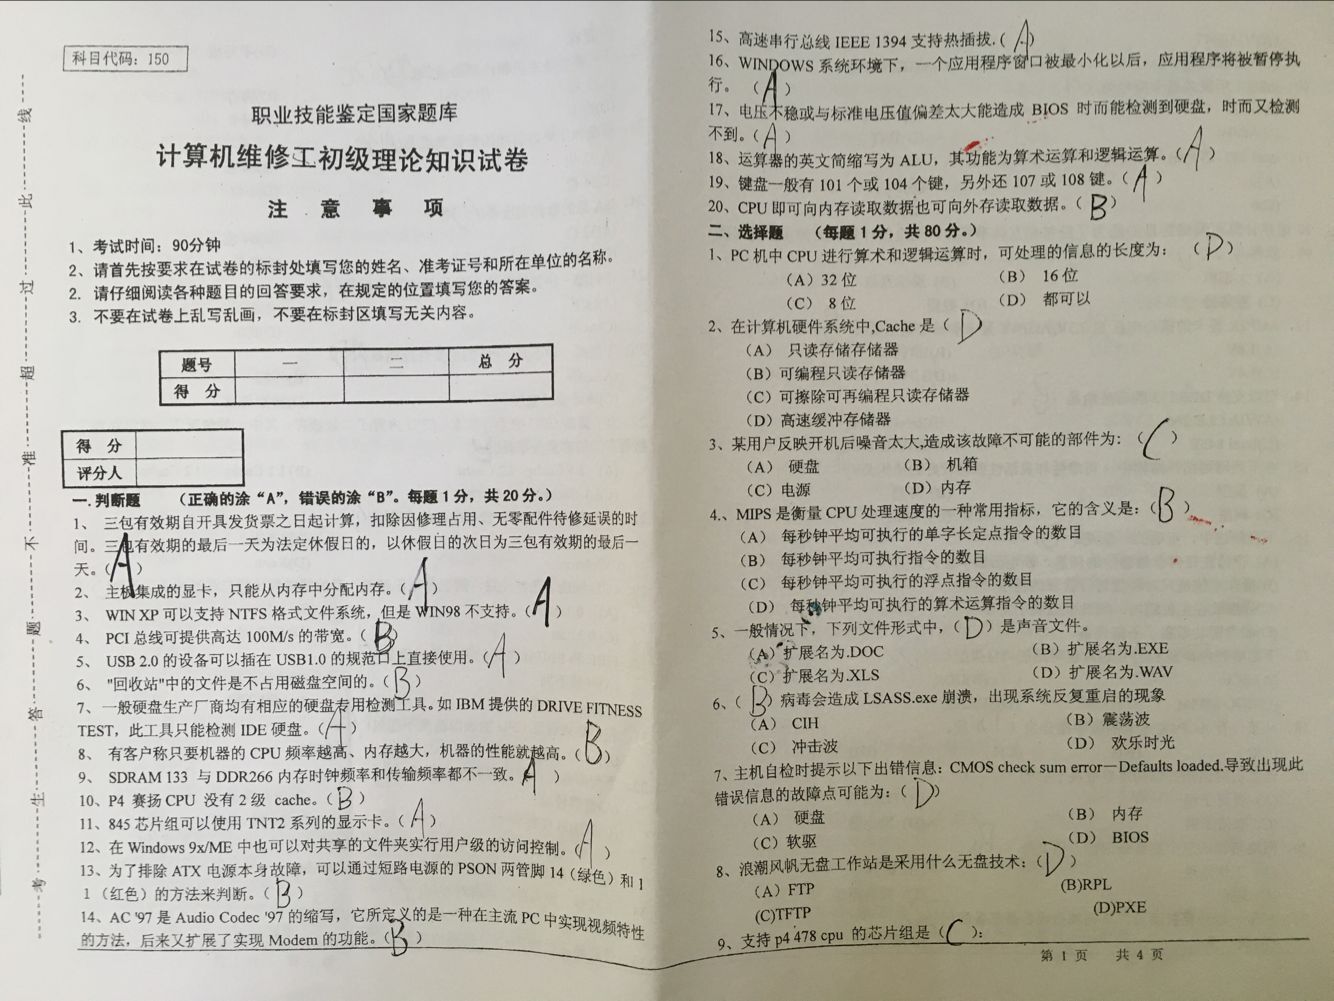 科目代码：150
职业技能鉴定国家题库
计算机维修工初级理论知识试卷
注 意 事 项
1、考试时间：90分钟
2、请首先按要求在试卷的标封处填写您的姓名、准考证号和所在单位的名称。
2．请仔细阅读各种题目的回答要求，在规定的位置填写您的答案。
3．不要在试卷上乱写乱画，不要在标封区填写无关内容。
题号 一 二 总 分
得 分
得 分
评分人
一.判断题 （正确的涂“A”，错误的涂“B”。每题1分，共20分。）
1、 三包有效期自开具发货票之日起计算，扣除因修理占用、无零配件待修延误的时
间。三包有效期的最后一天为法定休假日的，以休假日的次日为三包有效期的最后一
天。（A）
2、 主板集成的显卡，只能从内存中分配内存。（A）
3、 WIN XP 可以支持 NTFS 格式文件系统，但是 WIN98 不支持。（A）
4、 PCI 总线可提供高达 100M/s 的带宽。（B）
5、 USB 2.0 的设备可以插在 USB1.0 的规范口上直接使用。（A）
6、 "回收站"中的文件是不占用磁盘空间的。（B）
7、 一般硬盘生产厂商均有相应的硬盘专用检测工具。如 IBM 提供的 DRIVE FITNESS
TEST，此工具只能检测 IDE 硬盘。（A）
8、 有客户称只要机器的 CPU 频率越高、内存越大，机器的性能就越高。（B）
9、 SDRAM 133 与 DDR266 内存时钟频率和传输频率都不一致。（A）
10、P4 赛扬 CPU 没有 2 级 cache。（B）
11、845 芯片组可以使用 TNT2 系列的显示卡。（A）
12、在 Windows 9x/ME 中也可以对共享的文件夹实行用户级的访问控制。（A）
13、为了排除 ATX 电源本身故障，可以通过短路电源的 PSON 两管脚 14（绿色）和 1
1（红色）的方法来判断。（B）
14、AC '97 是 Audio Codec '97 的缩写，它所定义的是一种在主流 PC 中实现视频特性
的方法，后来又扩展了实现 Modem 的功能。（B）
考生答题不准超过此线
15、高速串行总线 IEEE 1394 支持热插拔.（A）
16、WINDOWS 系统环境下，一个应用程序窗口被最小化以后，应用程序将被暂停执
行。（A）
17、电压不稳或与标准电压值偏差太大能造成 BIOS 时而能检测到硬盘，时而又检测
不到。（A）
18、运算器的英文简缩写为 ALU，其功能为算术运算和逻辑运算。（A）
19、键盘一般有 101 个或 104 个键，另外还 107 或 108 键。（A）
20、CPU 即可向内存读取数据也可向外存读取数据。（B）
二、选择题 （每题1分，共80分。）
1、PC 机中 CPU 进行算术和逻辑运算时，可处理的信息的长度为：（D）
（A）32 位 （B） 16 位
（C） 8位 （D） 都可以
2、在计算机硬件系统中,Cache 是（D
（A） 只读存储存储器
（B）可编程只读存储器
（C）可擦除可再编程只读存储器
（D）高速缓冲存储器
3、某用户反映开机后噪音太大,造成该故障不可能的部件为：（C）
（A） 硬盘 （B） 机箱
（C）电源 （D）内存
4.、MIPS 是衡量 CPU 处理速度的一种常用指标，它的含义是：（B）
（A） 每秒钟平均可执行的单字长定点指令的数目
（B） 每秒钟平均可执行指令的数目
（C） 每秒钟平均可执行的浮点指令的数目
（D） 每秒钟平均可执行的算术运算指令的数目
5、一般情况下，下列文件形式中，（D）是声音文件。
（A）扩展名为.DOC （B）扩展名为.EXE
（C）扩展名为.XLS （D）扩展名为.WAV
6、（B）病毒会造成 LSASS.exe 崩溃，出现系统反复重启的现象
（A） CIH （B）震荡波
（C） 冲击波 （D） 欢乐时光
7、主机自检时提示以下出错信息：CMOS check sum error－Defaults loaded.导致出现此
错误信息的故障点可能为：（D）
（A） 硬盘 （B） 内存
（C）软驱 （D） BIOS
8、浪潮风帆无盘工作站是采用什么无盘技术：（D）
（A）FTP (B)RPL
(C)TFTP (D)PXE
9、支持 p4 478 cpu 的芯片组是（C）：
第 1 页 共 4 页